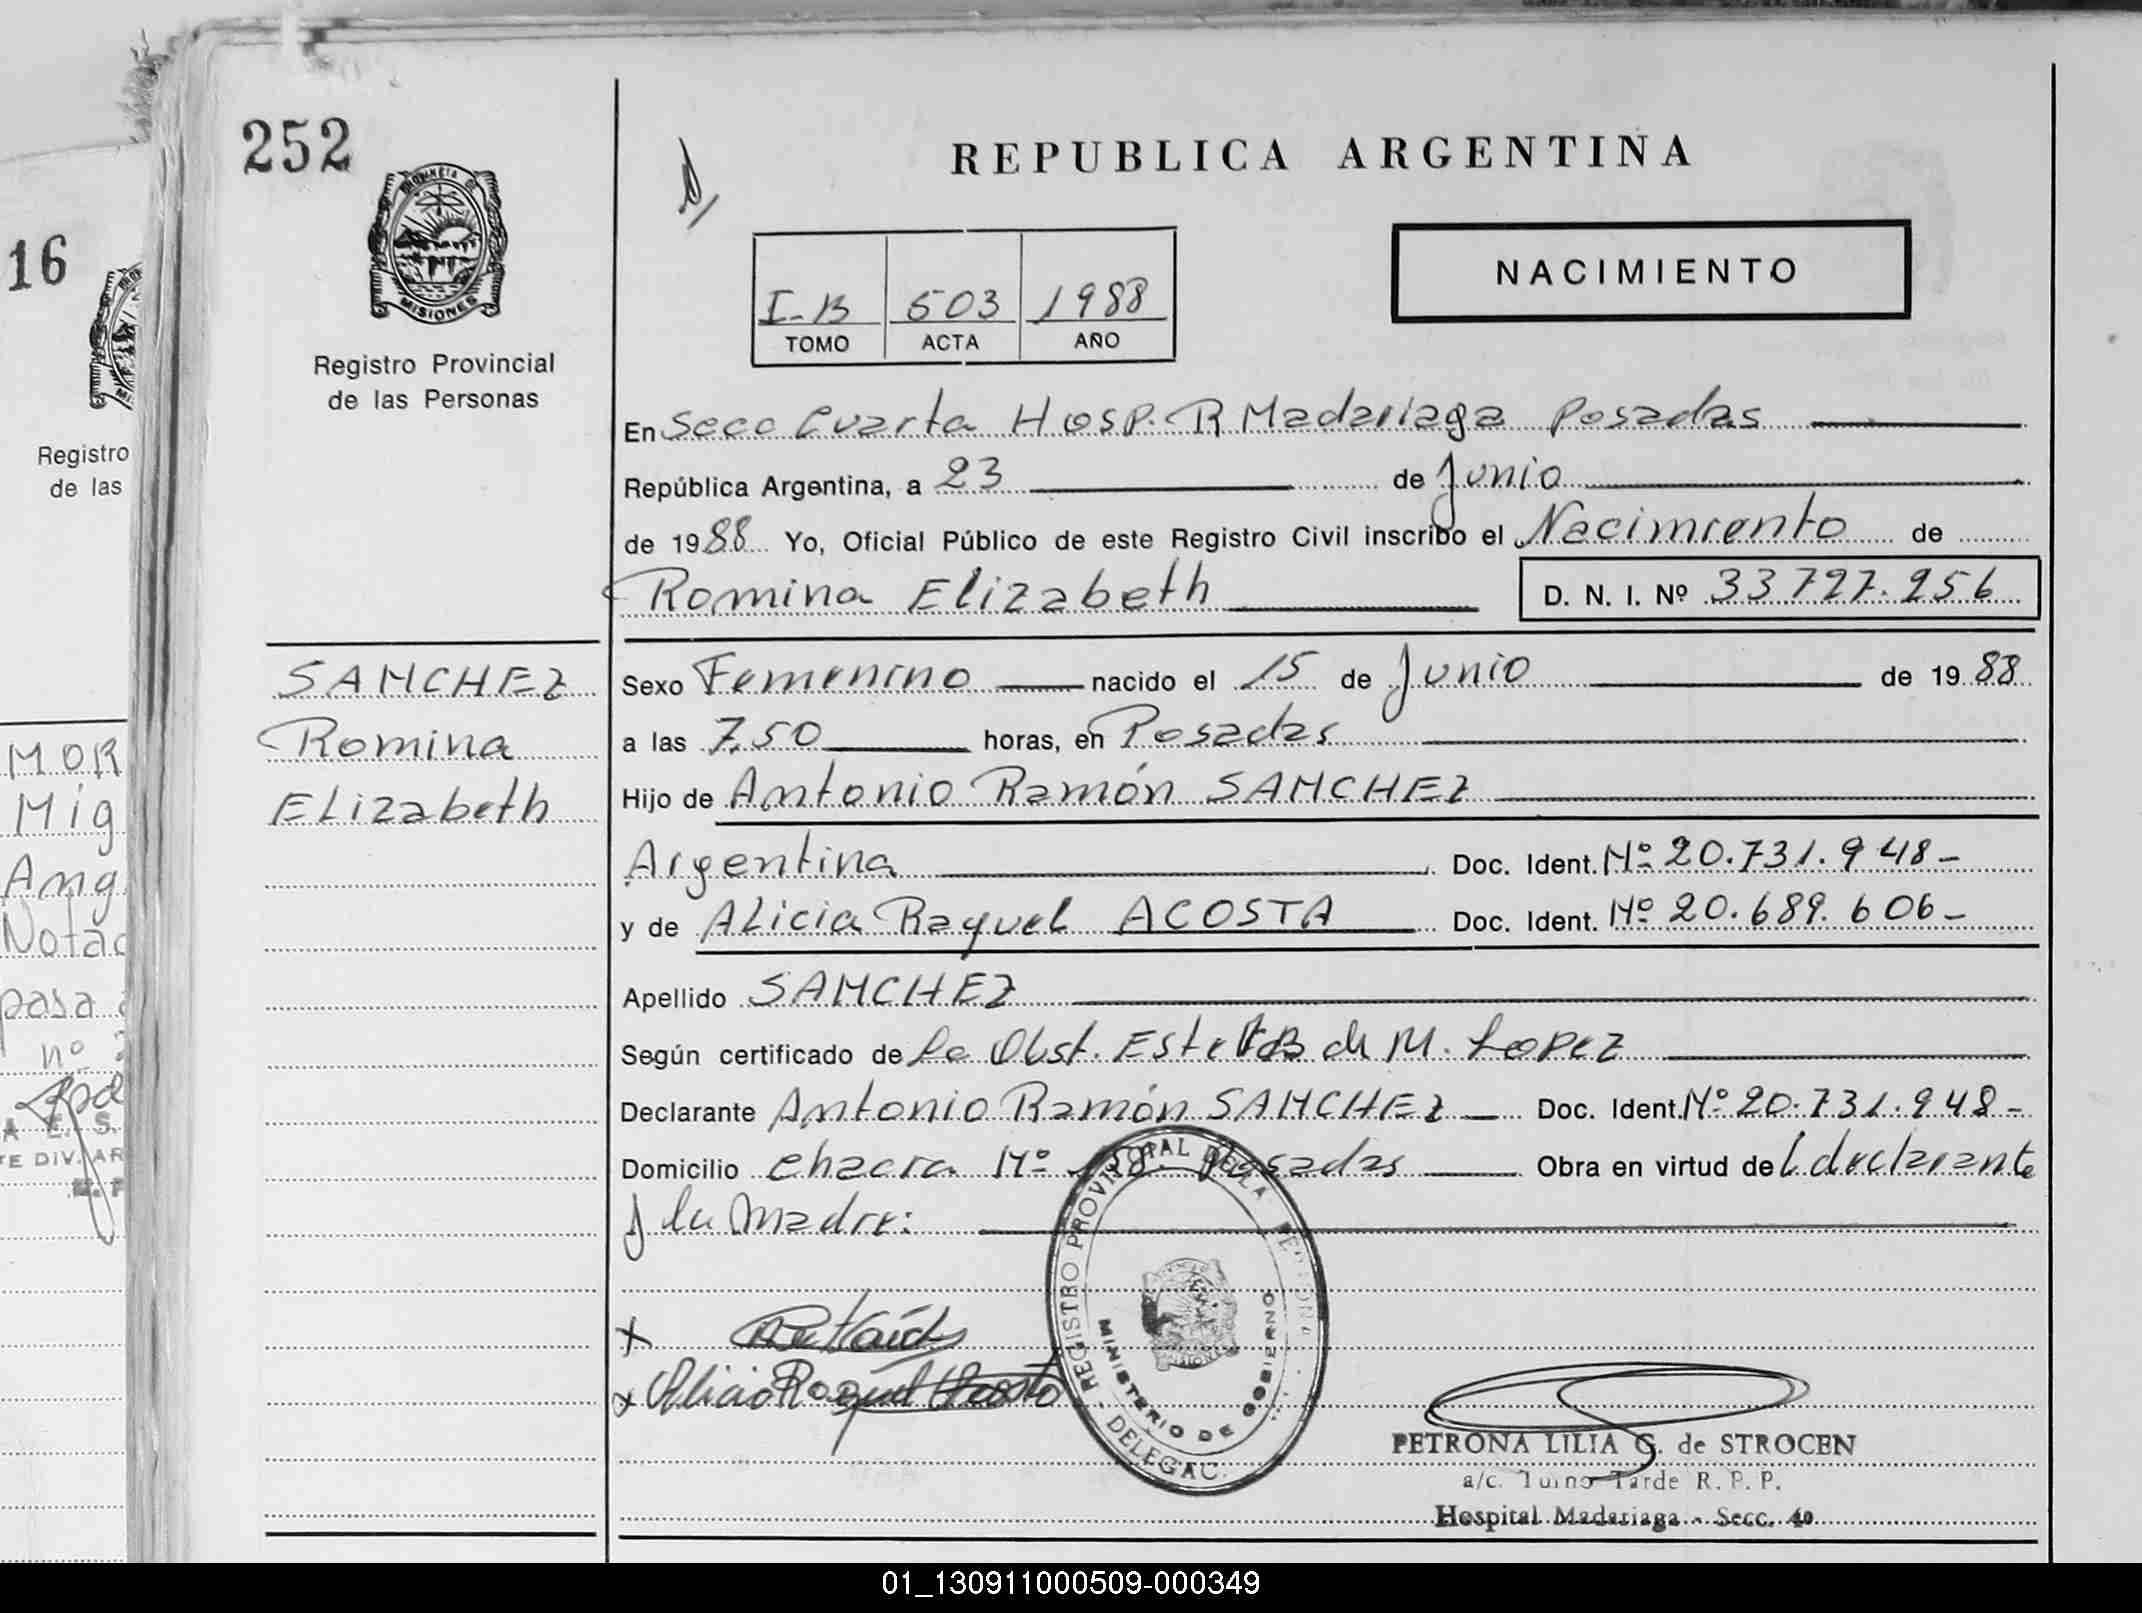 252
PROVINCIA DE
MISIONES
Registro Provincial
de las Personas
REPUBLICA ARGENTINA
I-B 503 1988
TOMO ACTA AÑO
NACIMIENTO
En Secc Cuarta Hosp. R Madariaga Posadas
República Argentina, a 23 de Junio
de 1988 Yo, Oficial Público de este Registro Civil inscribo el Nacimiento de
Romina Elizabeth D. N. I. Nº 33.727.256
SANCHEZ
Romina
Elizabeth
Sexo Femenino nacido el 15 de Junio de 1988
a las 7,50 horas, en Posadas
Hijo de Antonio Ramón SANCHEZ
Argentina Doc. Ident. Nº 20.731.948-
y de Alicia Raquel ACOSTA Doc. Ident. Nº 20.689.606-
Apellido SANCHEZ
Según certificado de La Obst. de M. Lopez
Declarante Antonio Ramón SANCHEZ Doc. Ident. Nº 20.731.948-
Domicilio chacra Nº Posadas Obra en virtud de l declarante
y la Madre:
X
X Alicia Raquel Acosta
REGISTRO PROVINCIAL DE LA
MINISTERIO DE GOBIERNO
DELEGAC.
PETRONA LILIA G. de STROCEN
a/c. Turno Tarde R. P. P.
Hospital Madariaga - Secc. 4o
16
Registro
de las
MOR
Mig
Ang
Notac
pasa
nº
E. S.
TE DIV. AR
01_130911000509-000349